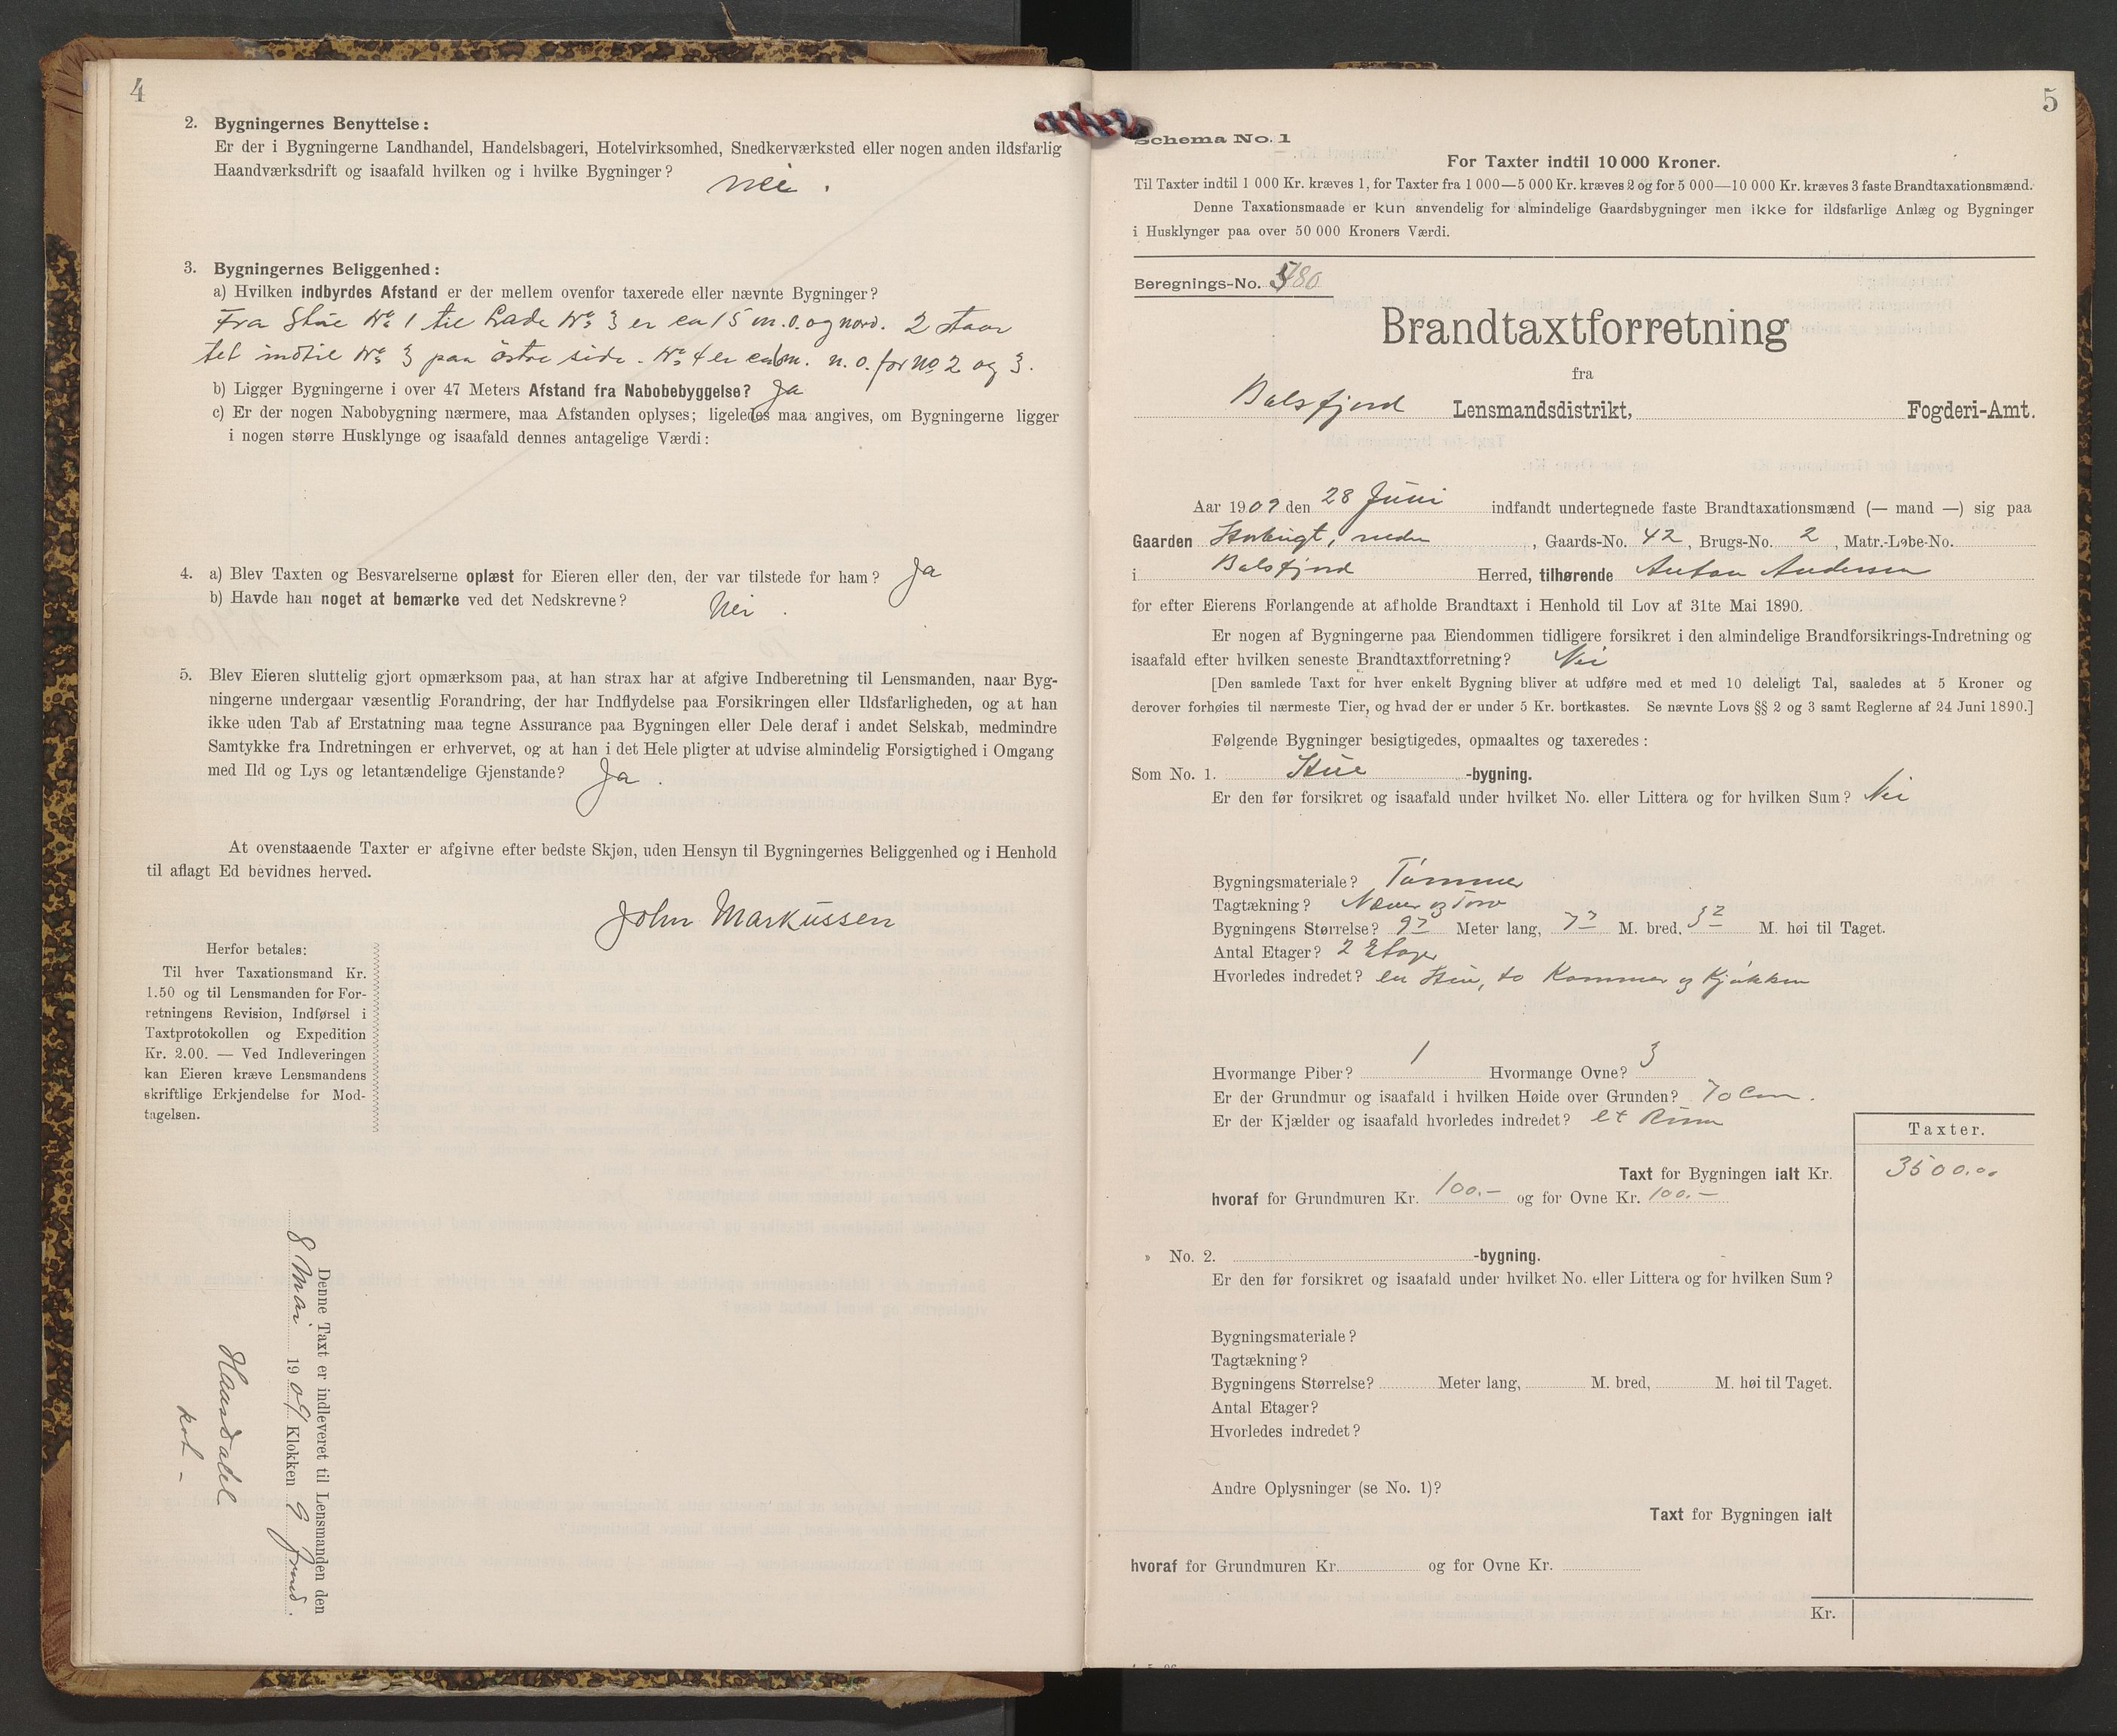 4
2. Bygningernes Benyttelse:
Er der i Bygningerne Landhandel, Handelsbageri, Hotelvirksomhed, Snedkerværksted eller nogen anden ildsfarlig
Haandværksdrift og isaafald hvilken og i hvilke Bygninger? nei.
3. Bygningernes Beliggenhed:
a) Hvilken indbyrdes Afstand er der mellem ovenfor taxerede eller nævnte Bygninger?
Fra Stue No 1 til Lade No 3 er ca 15 m. o. og nord. 2 staar
tet indtil No 3 paa östre side. No 4 er ca m. n. o. for no 2 og 3.
b) Ligger Bygningerne i over 47 Meters Afstand fra Nabobebyggelse? Ja
c) Er der nogen Nabobygning nærmere, maa Afstanden oplyses; ligeledes maa angives, om Bygningerne ligger
i nogen større Husklynge og isaafald dennes antagelige Værdi:
4. a) Blev Taxten og Besvarelserne oplæst for Eieren eller den, der var tilstede for ham? Ja
b) Havde han noget at bemærke ved det Nedskrevne? Nei.
5. Blev Eieren sluttelig gjort opmærksom paa, at han strax har at afgive Indberetning til Lensmanden, naar Byg-
ningerne undergaar væsentlig Forandring, der har Indflydelse paa Forsikringen eller Ildsfarligheden, og at han
ikke uden Tab af Erstatning maa tegne Assurance paa Bygningen eller Dele deraf i andet Selskab, medmindre
Samtykke fra Indretningen er erhvervet, og at han i det Hele pligter at udvise almindelig Forsigtighed i Omgang
med Ild og Lys og letantændelige Gjenstande? Ja.
At ovenstaaende Taxter er afgivne efter bedste Skjøn, uden Hensyn til Bygningernes Beliggenhed og i Henhold
til aflagt Ed bevidnes herved.
John Markussen
Herfor betales:
Til hver Taxationsmand Kr.
1.50 og til Lensmanden for For-
retningens Revision, Indførsel i
Taxtprotokollen og Expedition
Kr. 2.00. — Ved Indleveringen
kan Eieren kræve Lensmandens
skriftlige Erkjendelse for Mod-
tagelsen.
Denne Taxt er indleveret til Lensmanden den
8 Mai 1909 Klokken 9 Fmd.
kst -
5
Schema No. 1
For Taxter indtil 10 000 Kroner.
Til Taxter indtil 1 000 Kr. kræves 1, for Taxter fra 1 000—5 000 Kr. kræves 2 og for 5 000—10 000 Kr. kræves 3 faste Brandtaxationsmænd.
Denne Taxationsmaade er kun anvendelig for almindelige Gaardsbygninger men ikke for ildsfarlige Anlæg og Bygninger
i Husklynger paa over 50 000 Kroners Værdi.
Beregnings-No. 480
Brandtaxtforretning
fra
Balsfjord Lensmandsdistrikt, Fogderi-Amt.
Aar 1909 den 28 Juni indfandt undertegnede faste Brandtaxationsmænd (— mand —) sig paa
Gaarden Storbugt, nedre, Gaards-No. 42, Brugs-No. 2, Matr.-Løbe-No.
i Balsfjord Herred, tilhørende Anton Andersen
for efter Eierens Forlangende at afholde Brandtaxt i Henhold til Lov af 31te Mai 1890.
Er nogen af Bygningerne paa Eiendommen tidligere forsikret i den almindelige Brandforsikrings-Indretning og
isaafald efter hvilken seneste Brandtaxtforretning? Nei
[Den samlede Taxt for hver enkelt Bygning bliver at udføre med et med 10 deleligt Tal, saaledes at 5 Kroner og
derover forhøies til nærmeste Tier, og hvad der er under 5 Kr. bortkastes. Se nævnte Lovs §§ 2 og 3 samt Reglerne af 24 Juni 1890.]
Følgende Bygninger besigtigedes, opmaaltes og taxeredes:
Som No. 1. Stue -bygning.
Er den før forsikret og isaafald under hvilket No. eller Littera og for hvilken Sum? Nei
Bygningsmateriale? Tømmer
Tagtækning? Næver og Torv
Bygningens Størrelse? 9 Meter lang, 7 M. bred, 3 2 M. høi til Taget.
Antal Etager? 2 Etager
Hvorledes indredet? en Stue, to Kammer og Kjøkken
Hvormange Piber? 1 Hvormange Ovne? 3
Er der Grundmur og isaafald i hvilken Høide over Grunden? 70 Cm.
Er der Kjælder og isaafald hvorledes indredet? et Rum
Taxter.
Taxt for Bygningen ialt Kr. 3500.00
hvoraf for Grundmuren Kr. 100.- og for Ovne Kr. 100.-
» No. 2. -bygning.
Er den før forsikret og isaafald under hvilket No. eller Littera og for hvilken Sum?
Bygningsmateriale?
Tagtækning?
Bygningens Størrelse? Meter lang, M. bred, M. høi til Taget.
Antal Etager?
Hvorledes indredet?
Andre Oplysninger (se No. 1)?
Taxt for Bygningen ialt
hvoraf for Grundmuren Kr. og for Ovne Kr.
Kr.